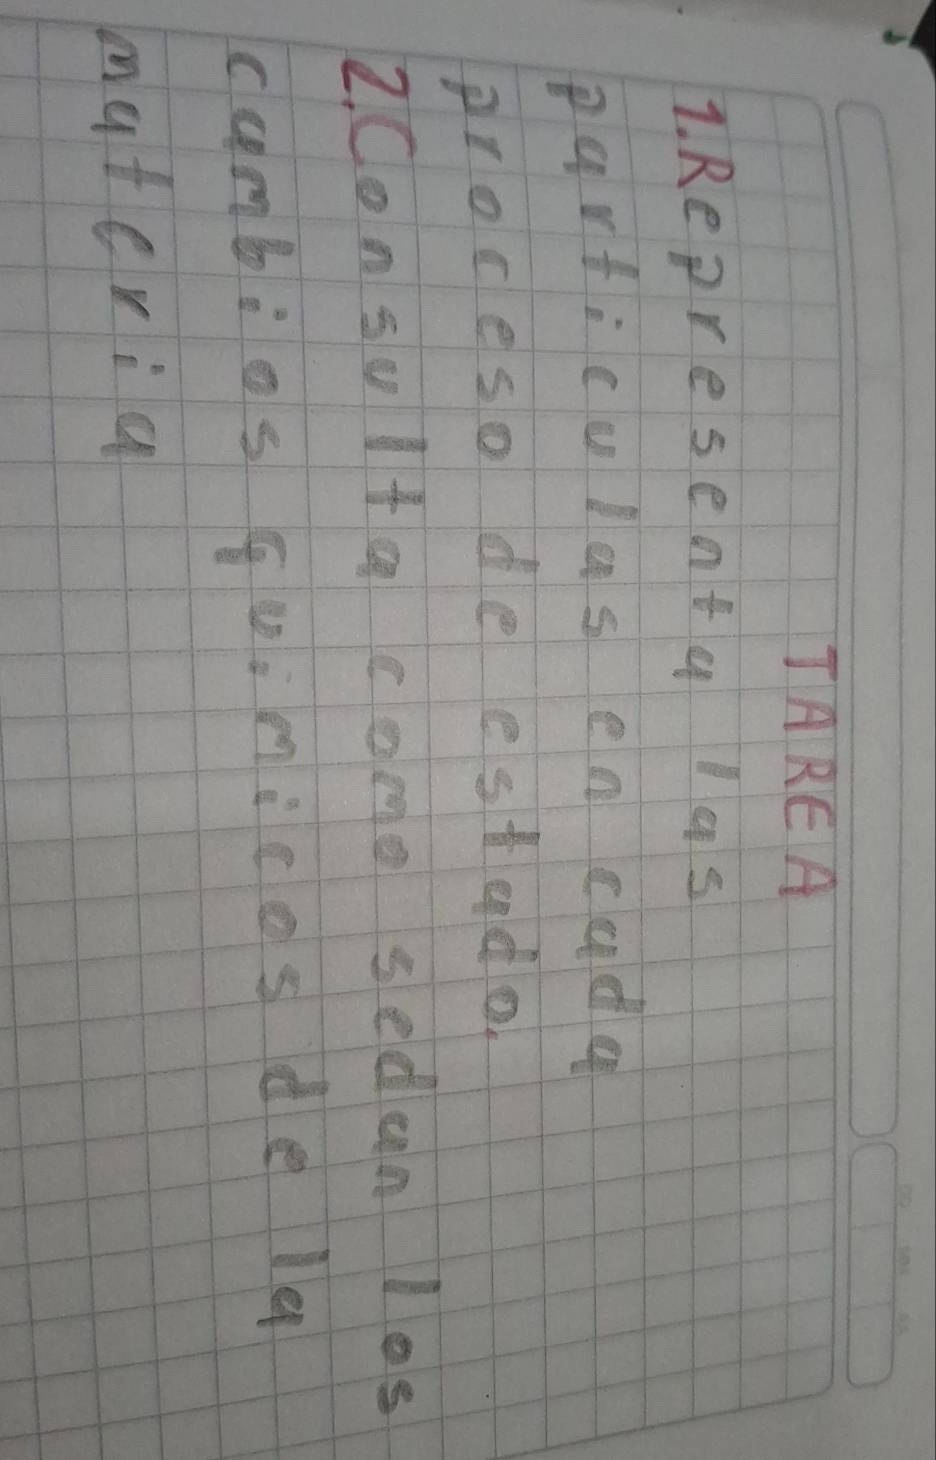 TAREA
1.Representa las
particulas en cada
proceso de estado.
2.Consulta como sedan los
cambios quimicos de la
materia